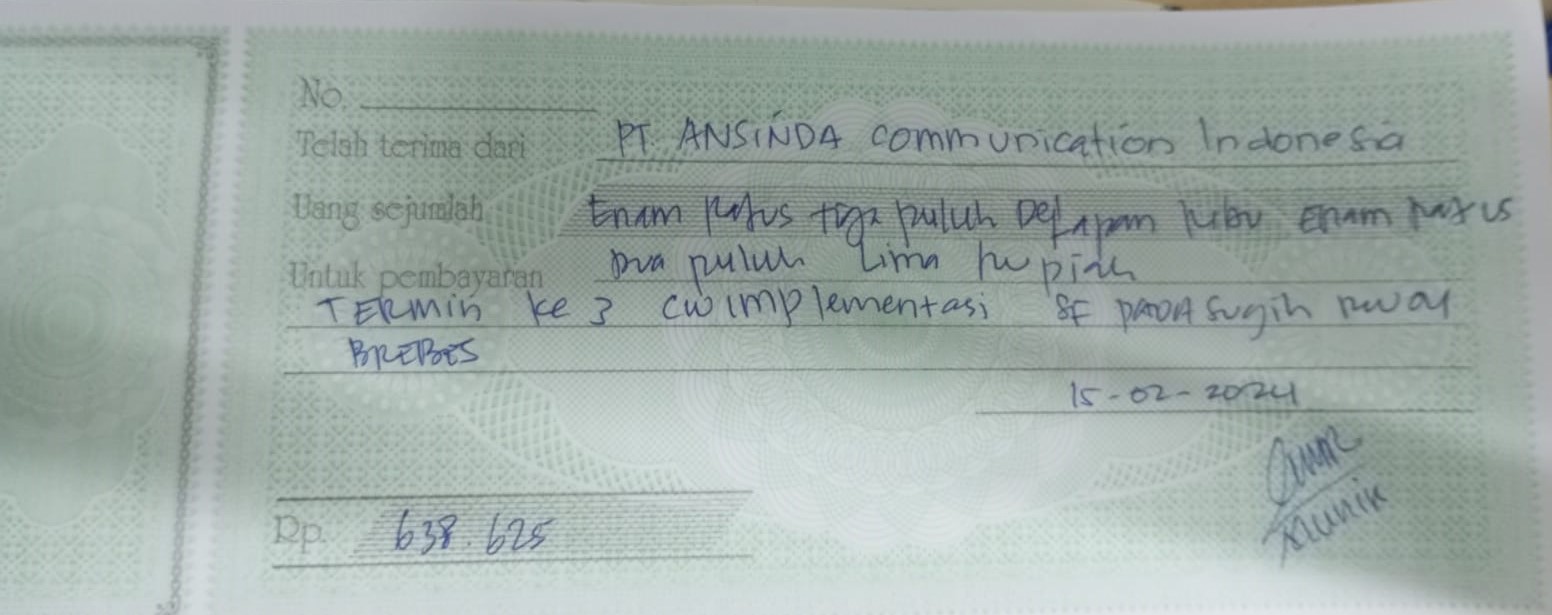 No.
Telah terima dari PT. ANSINDA Communication Indonesia
Uang sejumlah Enam Ratus tiga puluh Delapan Ribu Enam Ratus
Dua puluh Lima Rupiah
Untuk pembayaran
TERMin ke 3 CW implementasi SF PADA Sugih
BREBES
15-02-2024
Rp. 638.625